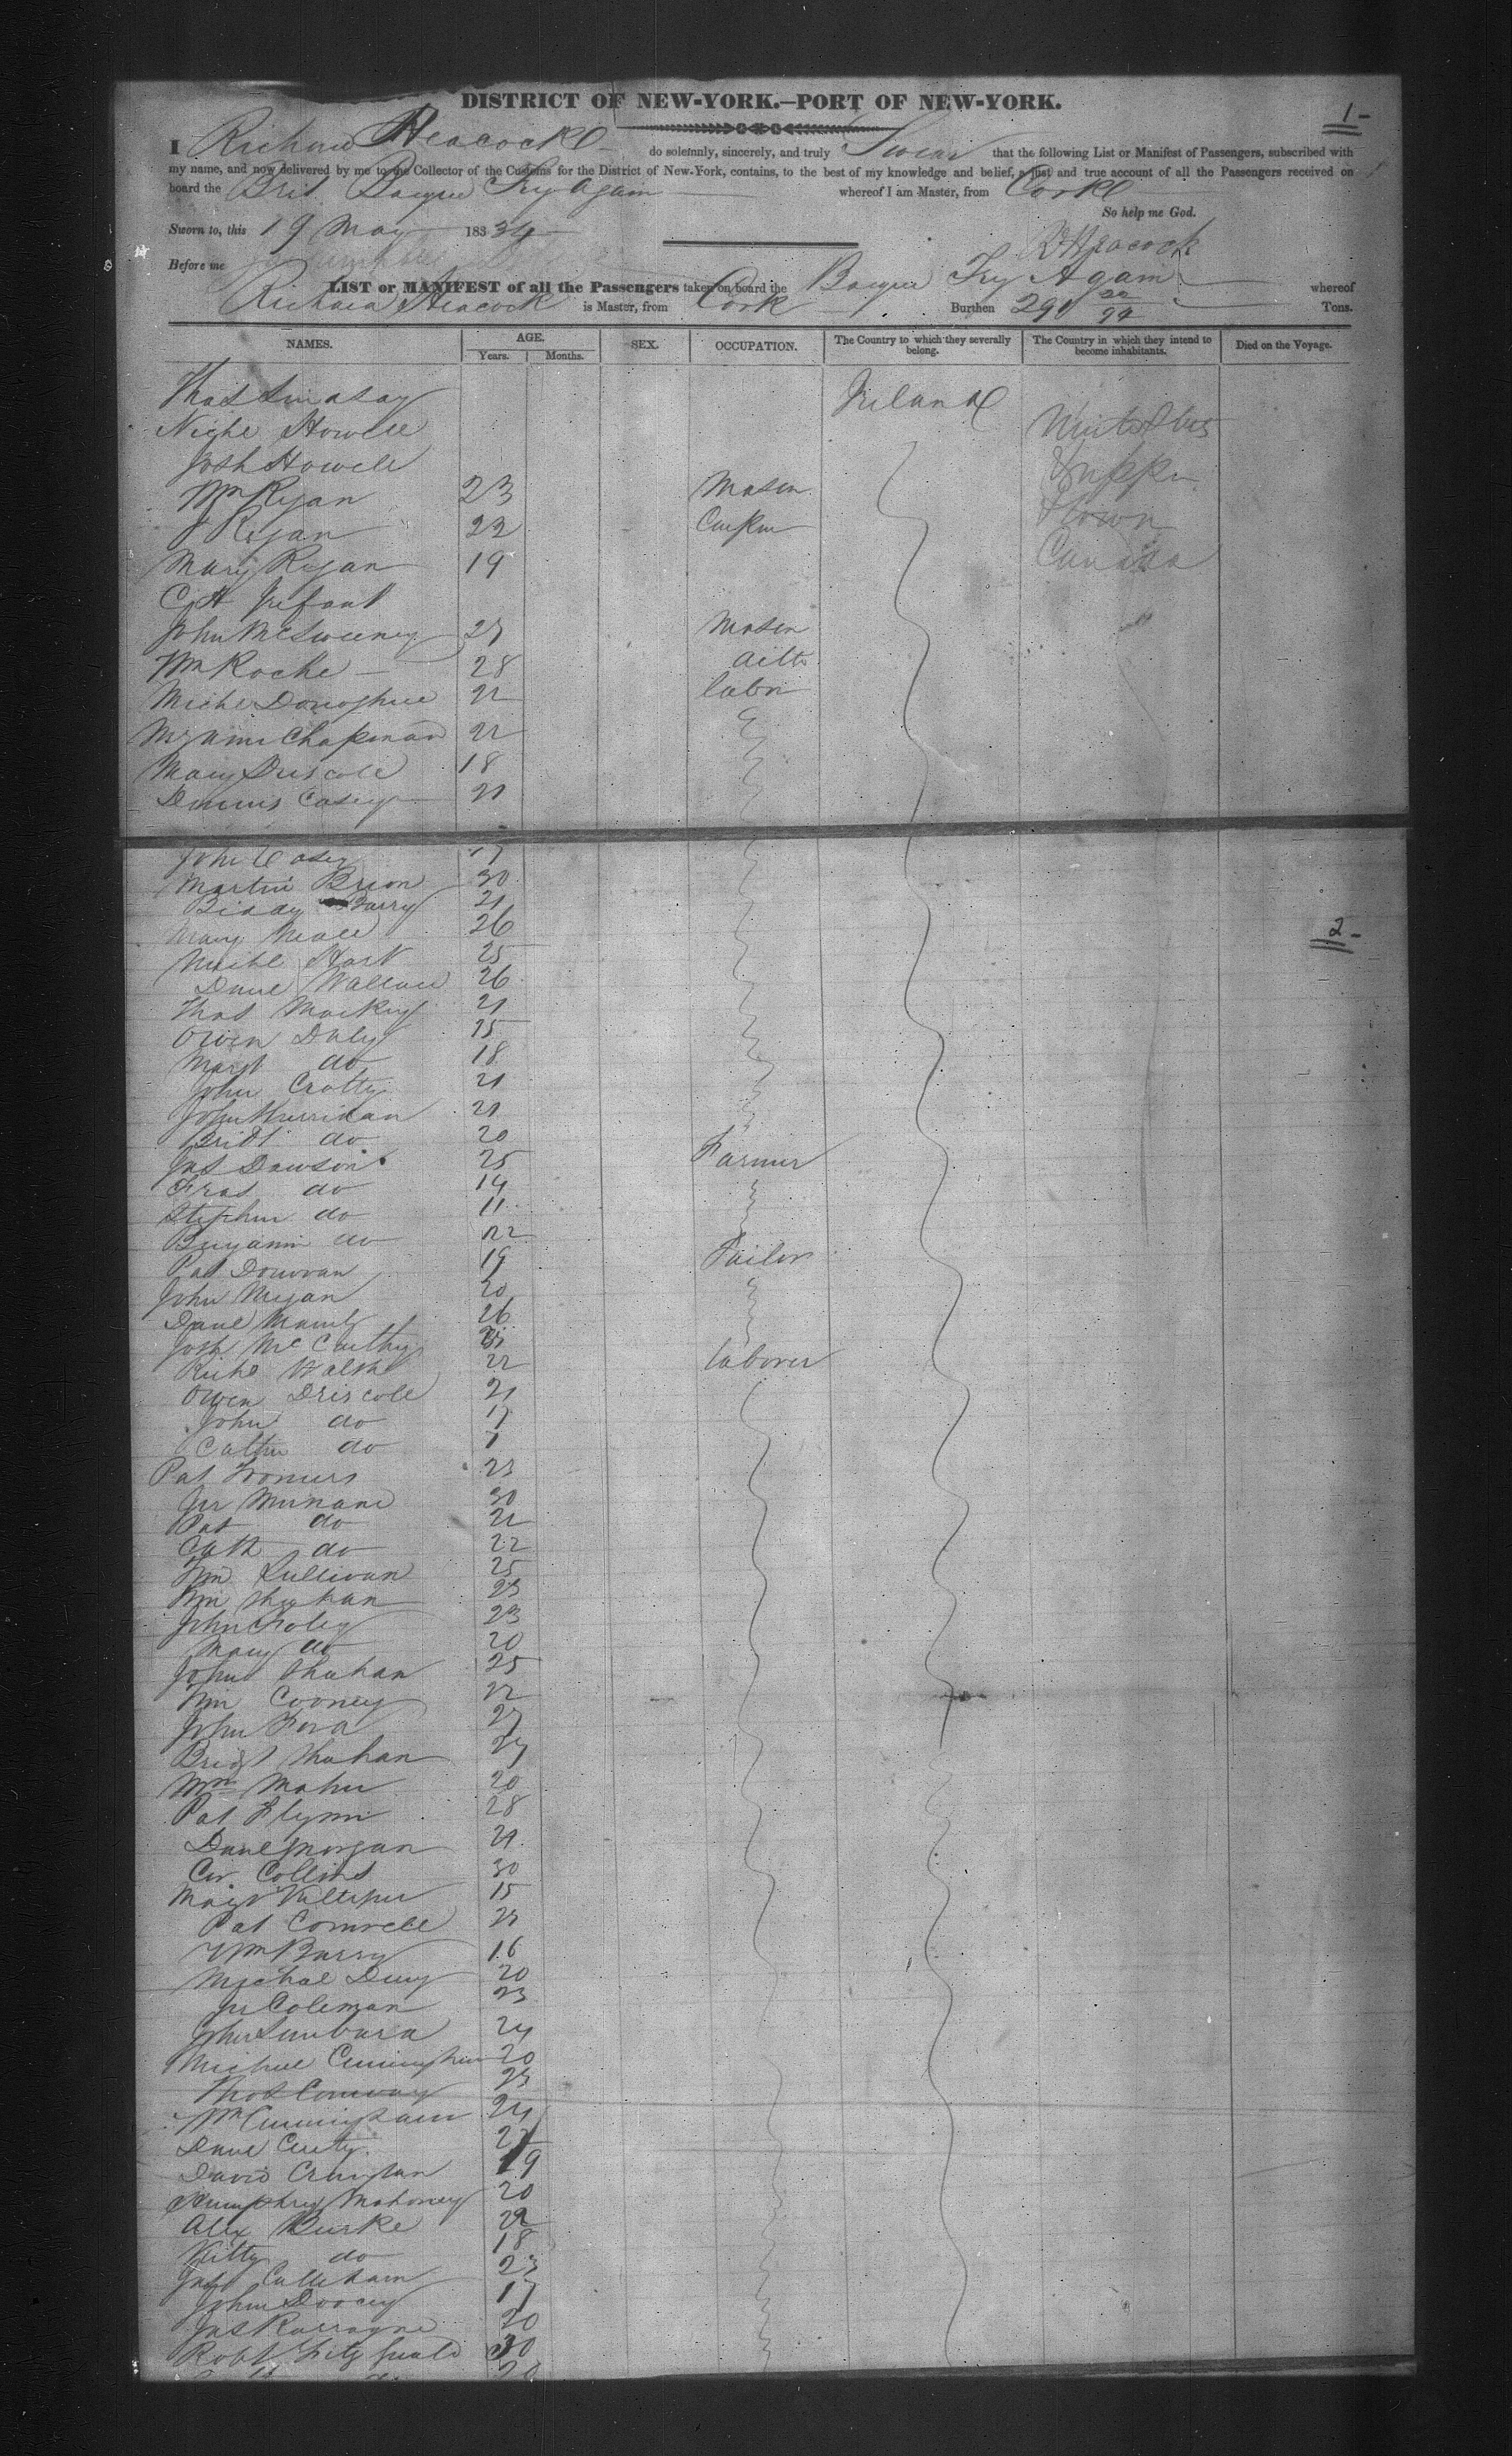 DISTRICT OF NEW-YORK.—PORT OF NEW-YORK.
1-
I Richard Heacock do solemnly, sincerely, and truly Swear that the following List or Manifest of Passengers, subscribed with
my name, and now delivered by me to the Collector of the Customs for the District of New-York, contains, to the best of my knowledge and belief, a just and true account of all the Passengers received on
board the Brit Barque Try Again whereof I am Master, from Cork
So help me God.
Sworn to, this 19 May 1834
R Heacock
Before me
LIST or MANIFEST of all the Passengers taken on board the Barque Try Again whereof
Richard Heacock is Master, from Cork Burthen 290 Tons.
NAMES. AGE. Years. Months. SEX. OCCUPATION. The Country to which they severally belong. The Country in which they intend to become inhabitants. Died on the Voyage.
Thos Lindsay Ireland
Nichs Howell United States
Josh Howell Upper
Wm Ryan 23 Mason
J Ryan 22
Mary Ryan 19 Canada
Infant
John McSweeney 27 Mason
Wm Roche 28 ditto
Michl Donoghue 22 labr
Chapman 22
Mary Driscole 18
Dennis Casey 21
John Casey 17
Martin Brien 30
Biddy Barry 21
2-
Mary Neale 26
Michl Hart 25
Danl Wallace 26
Thos Mackey 21
Owen Daly 25
Margt do 18
John Crotty 21
John Hurrican 21
Bridt do 20
Jas Dawson 25 Farmer
Fras do 14
Stephen do 11
Benjamin do 22
Pat Donovan 19 Tailor
John Regan 20
Danl 26
Josh McCarthy
Richd Walsh 22 laborer
Owen Driscole 21
John do 17
Cathn do 7
Pat 23
Jer Murnane 30
Pat do 22
Cath do 22
Wm Sullivan 25
Wm Shephan 23
John Foley 23
Mary do 20
John Shuhan 25
Wm Cooney 22
John Ford 27
Bridgt Shuhan 27
Wm Maher 20
Pat Flynn 28
Danl Morgan 21
Cor Collins 30
Margt 15
Pat Connell 25
Wm Barry 16
Michael 20
Jer Coleman 23
John Lombard 24
Michael Cuningham 20
Thos Conway 23
Wm Cunningham 24
Danl
David 19
Humphrey Mahoney 20
Alex Burke 22
Kitty do 18
Callaham 23
John Doocey 17
Jas 20
Robt Fitzgerald 30
20